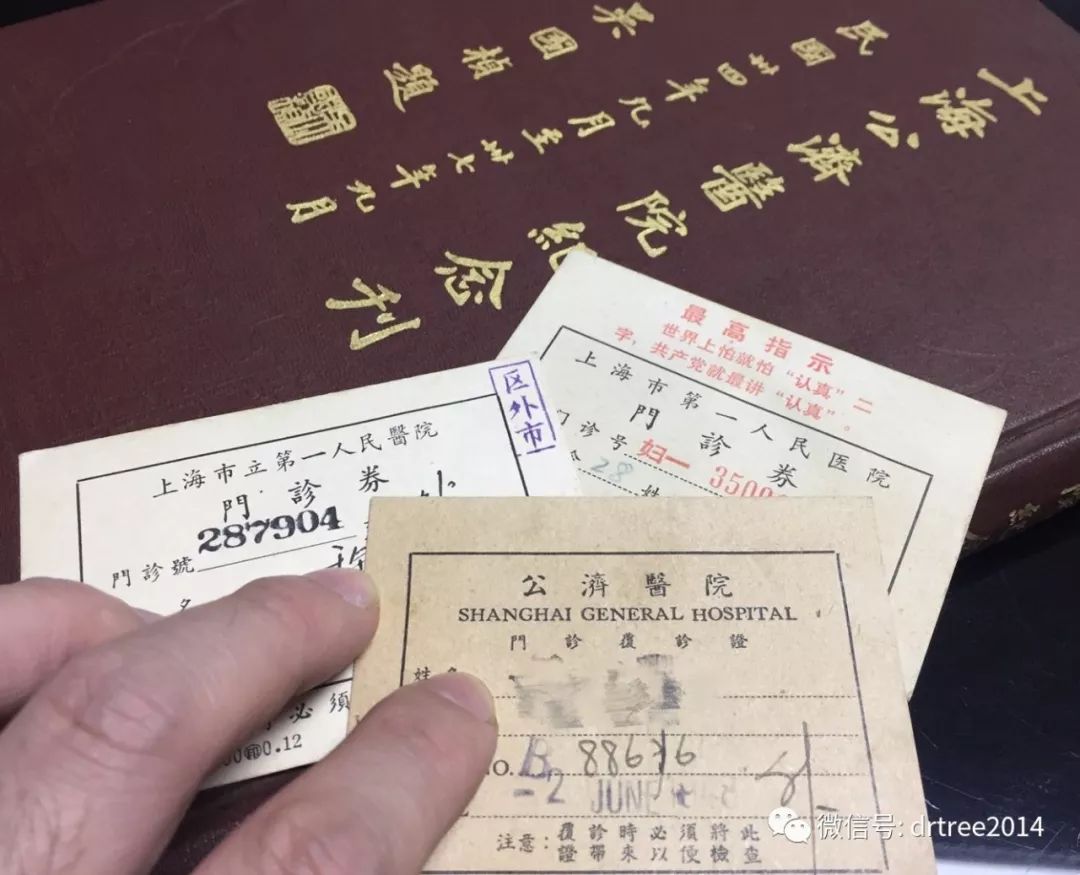 上海公濟醫院紀念刊
民國卅四年九月至卅七年九月
吴國楨題
最高指示
世界上怕就怕“认真”二
字，共产党就最讲“认真”。
上海市第一人民医院
門診券
门诊号 妇一 3500
28 姓
区外市
上海市立第一人民醫院
門診券
門診號 287904
名
必須
0.12
公濟醫院
SHANGHAI GENERAL HOSPITAL
門診覆診證
姓名
NO. B 88676
-2 JUNE
注意：覆診時必須將此
證帶來以便檢查
微信号: drtree2014